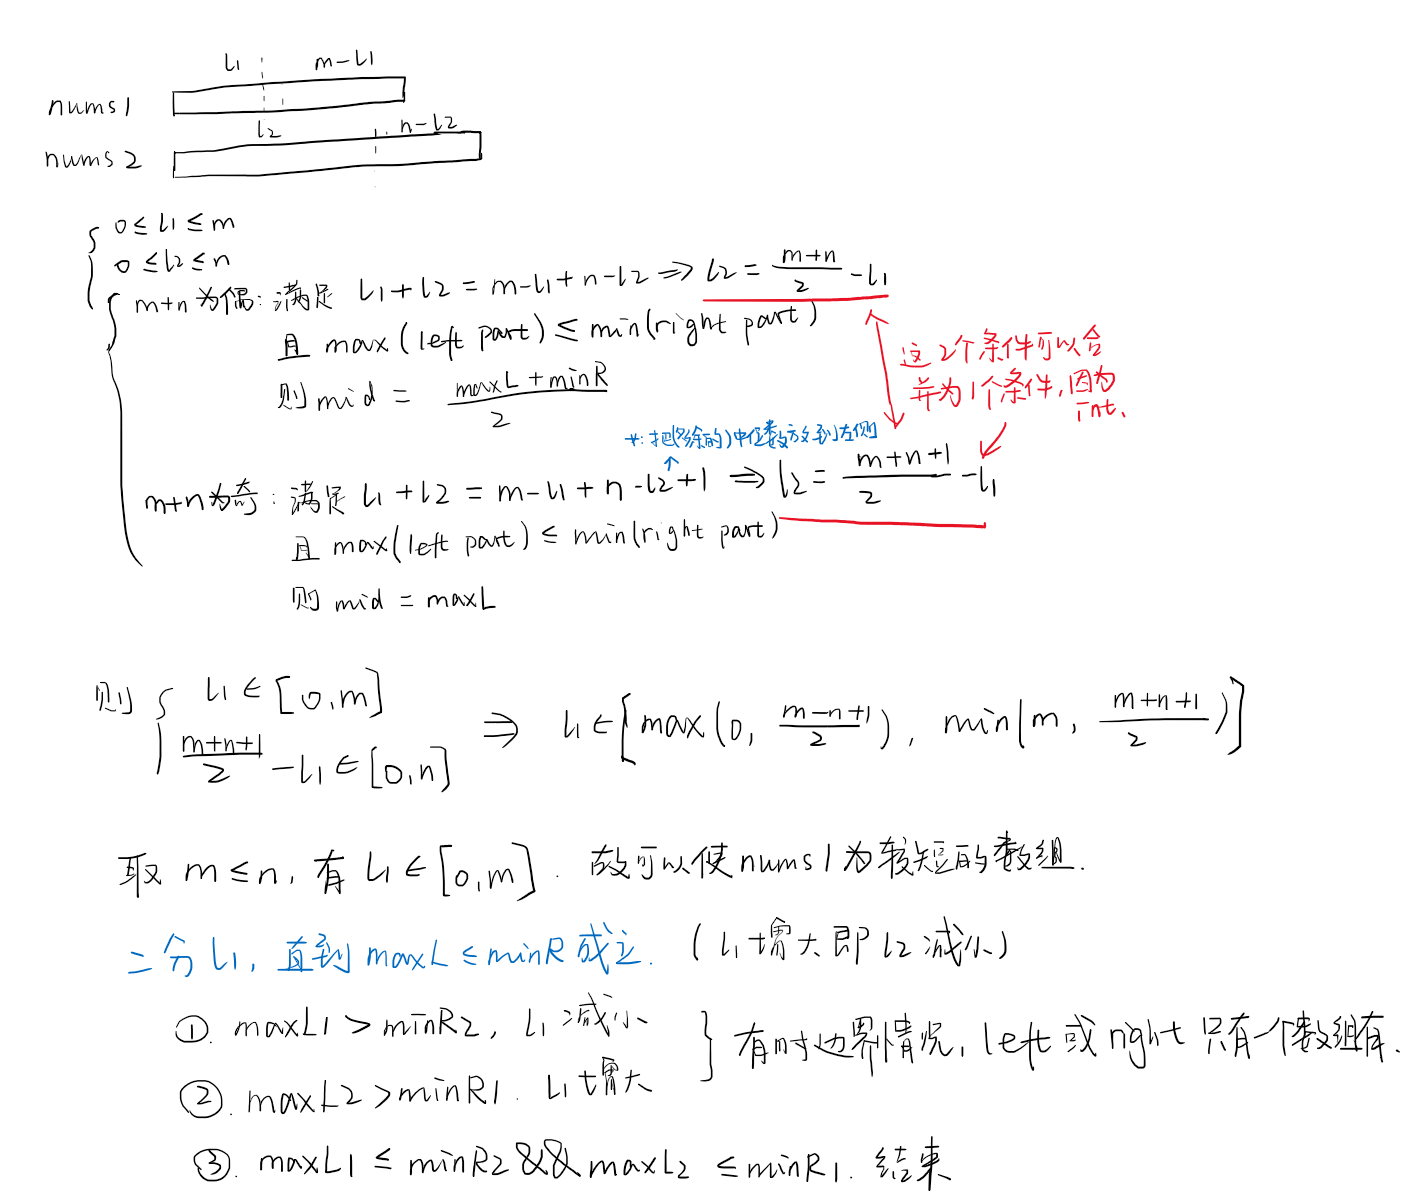 l1 m-l1
nums1
l2 n-l2
nums2
0≤l1≤m
0≤l2≤n
m+n为偶:满足 l1+l2=m-l1+n-l2⇒l2=\frac{m+n}{2}-l1
且 max(left part)≤min(right part)
则 mid = \frac{maxL+minR}{2}
这2个条件可以合
并为1个条件,因为
int.
*:把(多余的)中位数放到左侧
m+n为奇:满足 l1+l2=m-l1+n-l2+1 ⇒ l2=\frac{m+n+1}{2}-l1
且 max(left part)≤min(right part)
则 mid = maxL
则 { l1∈[0,m]
\frac{m+n+1}{2}-l1∈[0,n] ⇒ l1∈[max(0, \frac{m-n+1}{2}), min(m, \frac{m+n+1}{2})]
取 m≤n, 有 l1∈[0,m]. 故可以使nums1为较短的数组.
二分l1, 直到maxL≤minR成立. (l1增大即l2减小)
①. maxL1>minR2, l1减小
②. maxL2>minR1. l1增大
} 有时边界情况, left或right只有一个数组有.
③. maxL1≤minR2&&maxL2≤minR1. 结束